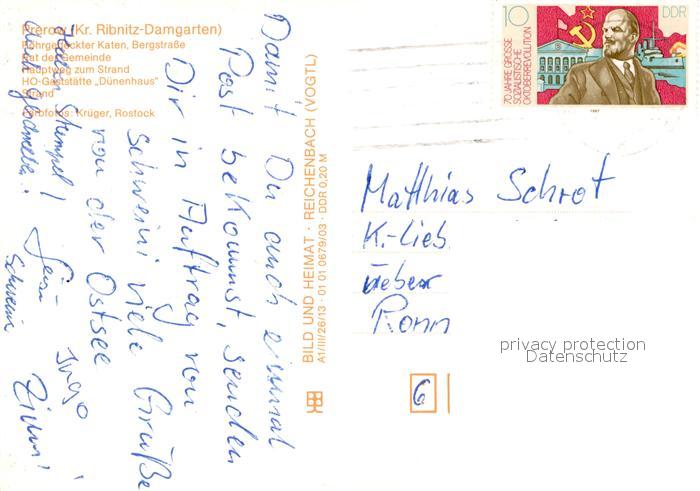 Prerow (Kr. Ribnitz-Damgarten)
Rohrgedeckter Katen, Bergstraße
Rat der Gemeinde
Hauptweg zum Strand
HO-Gaststätte „Dünenhaus"
Strand
Farbfotos: Krüger, Rostock
Damit Du auch einmal
Post bekommst, senden
Dir in Auftrag von
Schweini viele Grüße
von der Ostsee
Ingo
Zimmi
Schweini
Stempel!
BILD UND HEIMAT · REICHENBACH (VOGTL)
A1/III/26/13 · 01 01 0679/03 · DDR 0,20 M
10
DDR
70 JAHRE GROSSE
SOZIALISTISCHE
OKTOBERREVOLUTION
1987
Matthias Schrot
K.-Lieb
über
Ronn
privacy protection
Datenschutz
6